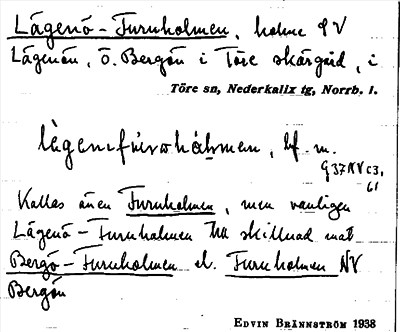 Lägenö-Furuholmen, holme S V
Lägenön, ö. Bergön i Töre skärgård, i
Töre sn, Nederkalix tg, Norrb. l.
bf m.
G 37 NV c3,
61
Kallas även Furuholmen, men vanligen
Lägenö-Furuholmen till skillnad mot
Bergö-Furuholmen el. Furuholmen NV
Bergön
EDVIN BRÄNNSTRÖM 1938